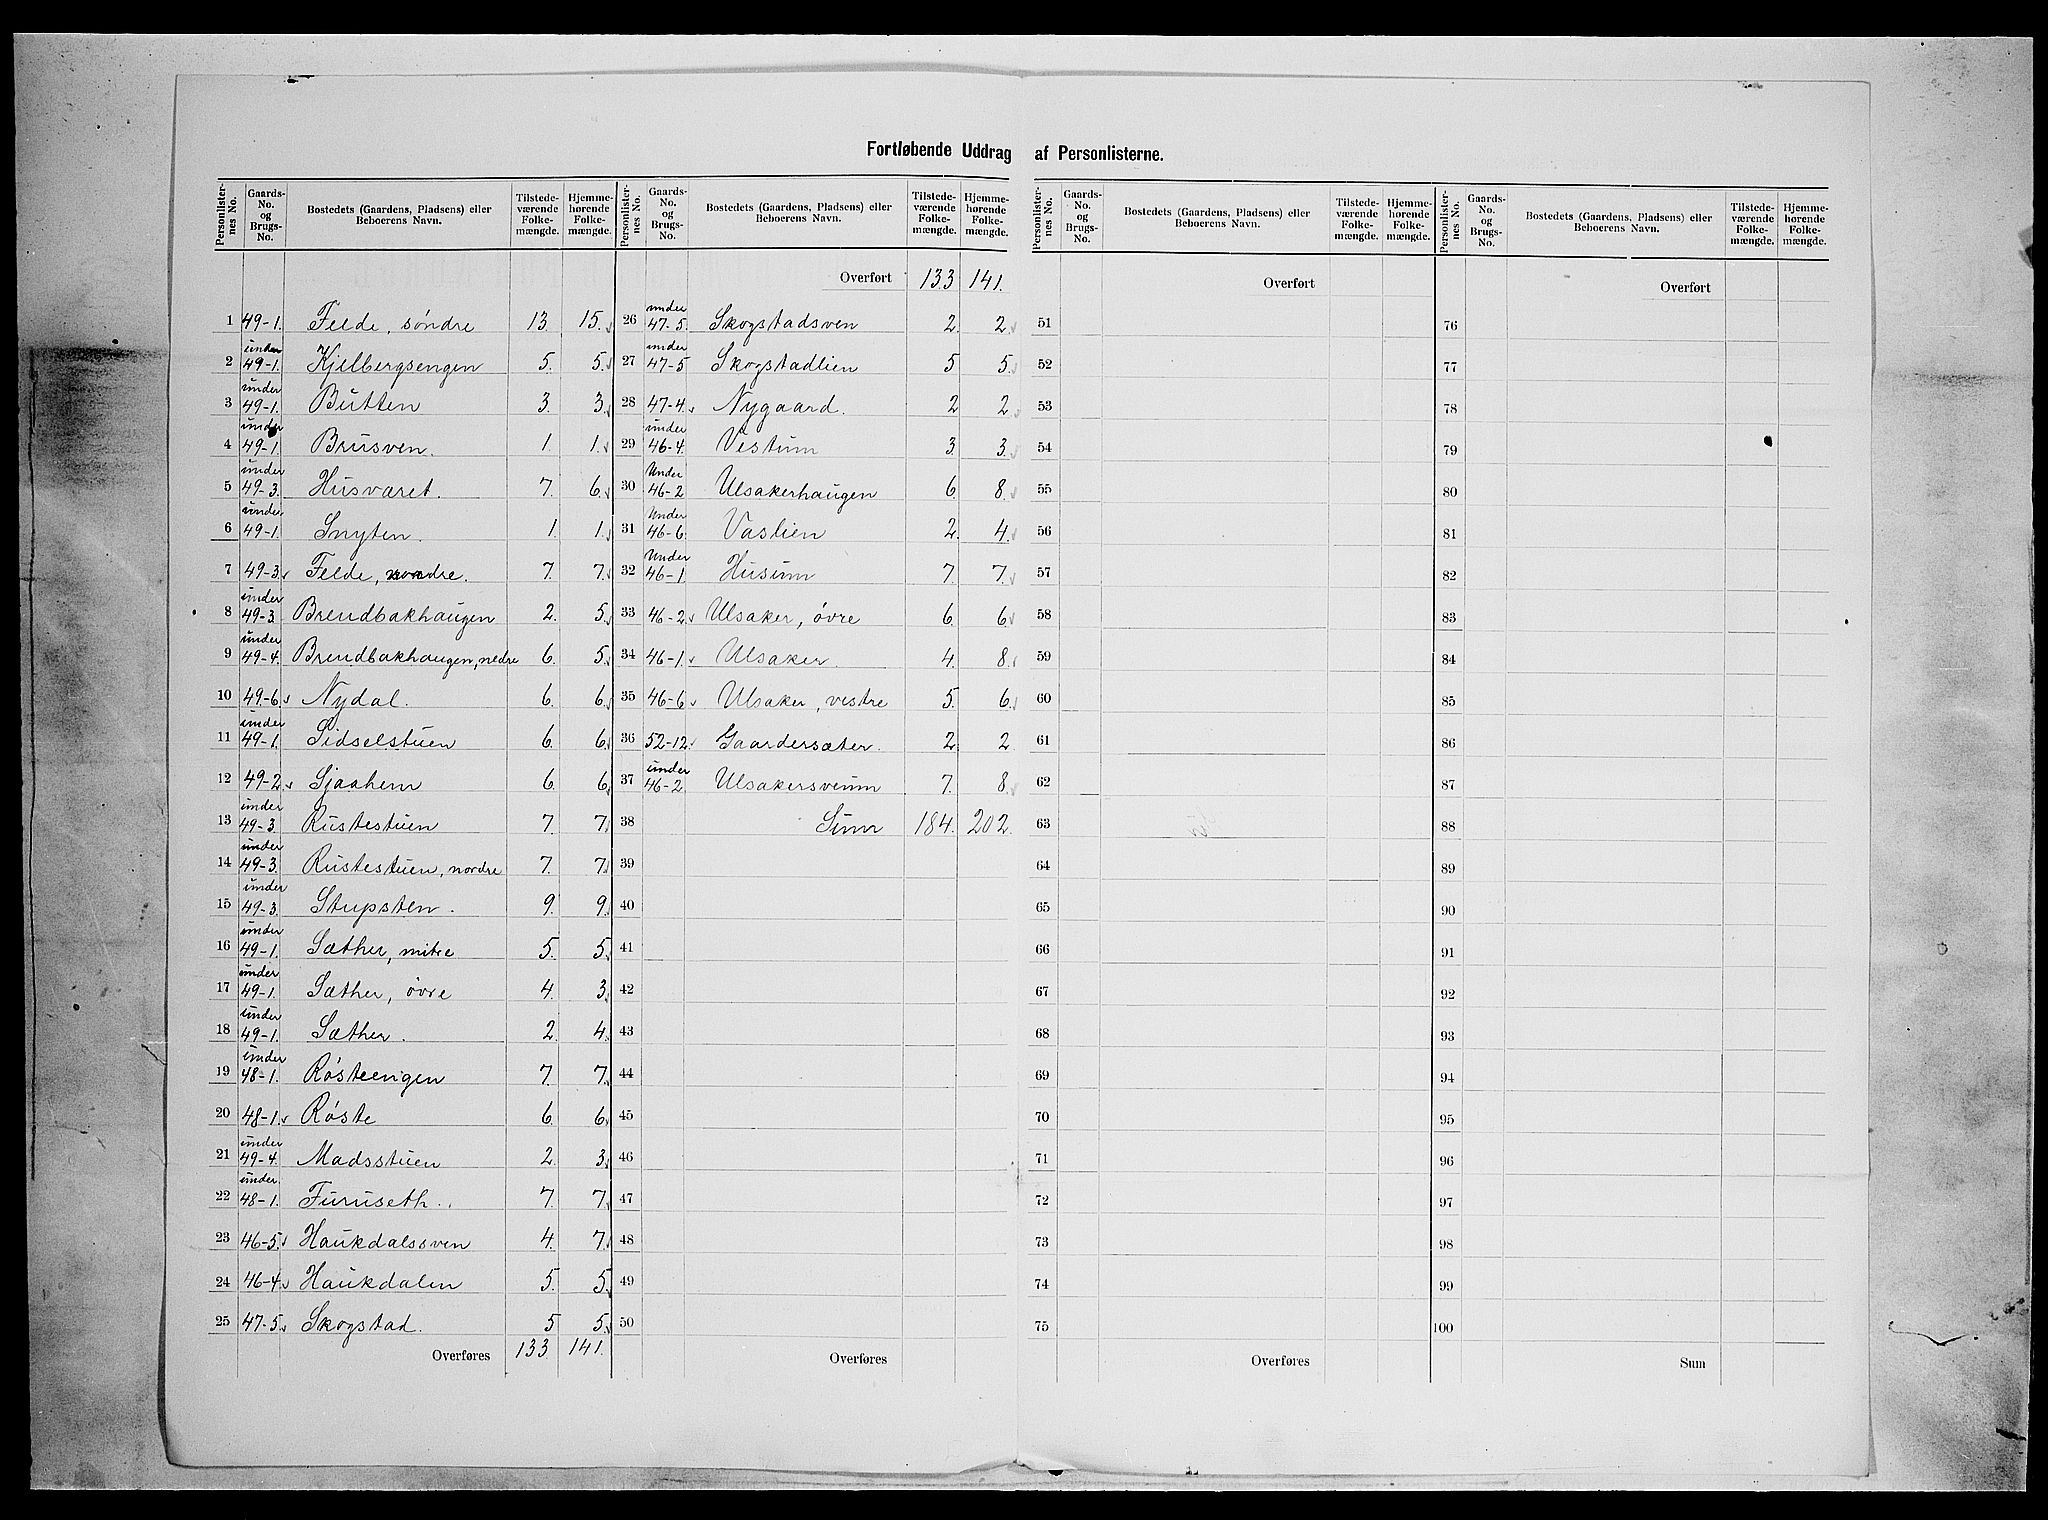 Fortløbende Uddrag af Personlisterne.
Personlisternes No. Gaards-No. og Brugs-No. Bostedets (Gaardens, Pladsens) eller Beboerens Navn. Tilstedeværende Folkemængde. Hjemmehørende Folkemængde.
1 49-1. Felde, söndre 13. 15.
2 under 49-1. Kjelbergsengen 5. 5.
3 under 49-1. Butten 3. 3.
4 under 49-1. Brusven. 1. 1.
5 under 49-3. Husværet. 7. 6.
6 under 49-1. Snyten. 1. 1.
7 49-3. Felde, nordre. 7. 7.
8 under 49-3. Brendbakhaugen 2. 5.
9 under 49-4. Brendbakhaugen, nedre 6. 5.
10 49-6 Nydal. 6. 6.
11 under 49-1. Sidselstuen 6. 6.
12 49-2 Sjaahem 6. 6.
13 under 49-3. Rustestuen 7. 7.
14 under 49-3. Rustestuen, nordre 7. 7.
15 under 49-3. Stupsten. 9. 9.
16 under 49-1. Sæther, mitre 5. 5.
17 under 49-1. Sæther, övre 4. 3.
18 under 49-1. Sæther. 2. 4.
19 under 48-1. Røsteengen 7. 7.
20 48-1. Røste 6. 6.
21 under 49-4. Madsstuen 2. 3.
22 under 48-1. Furuseth. 7. 7.
23 46-5. Haukdalssven 4. 7.
24 46-4 Haukdalen 5. 5.
25 47-5 Skogstad. 5 5.
Overføres 133. 141.
Personlisternes No. Gaards-No. og Brugs-No. Bostedets (Gaardens, Pladsens) eller Beboerens Navn. Tilstedeværende Folkemængde. Hjemmehørende Folkemængde.
Overført 133 141.
26 under 47-5. Skogstadsven 2. 2.
27 under 47-5 Skogstadlien 5 5.
28 47-4. Nygaard. 2 2.
29 under 46-4. Vestum 3. 3.
30 Under 46-2 Ulsakerhaugen 6. 8.
31 Under 46-6 Vaslien 2. 4.
32 Under 46-1 Husum 7. 7.
33 46-2 Ulsaker, övre 6. 6.
34 46-1. Ulsaker. 4. 8.
35 46-6 Ulsaker, vestre 5. 6.
36 52-12. Gaardersæter. 2. 2
37 under 46-2 Ulsakersveum 7. 8.
38 Sum 184. 202.
39
40
41
42
43
44
45
46
47
48
49
50
Overføres
Personlisternes No. Gaards-No. og Brugs-No. Bostedets (Gaardens, Pladsens) eller Beboerens Navn. Tilstedeværende Folkemængde. Hjemmehørende Folkemængde.
Overført
51
52
53
54
55
56
57
58
59
60
61
62
63
64
65
66
67
68
69
70
71
72
73
74
75
Overføres
Personlisternes No. Gaards-No. og Brugs-No. Bostedets (Gaardens, Pladsens) eller Beboerens Navn. Tilstedeværende Folkemængde. Hjemmehørende Folkemængde.
Overført
76
77
78
79
80
81
82
83
84
85
86
87
88
89
90
91
92
93
94
95
96
97
98
99
100
Sum